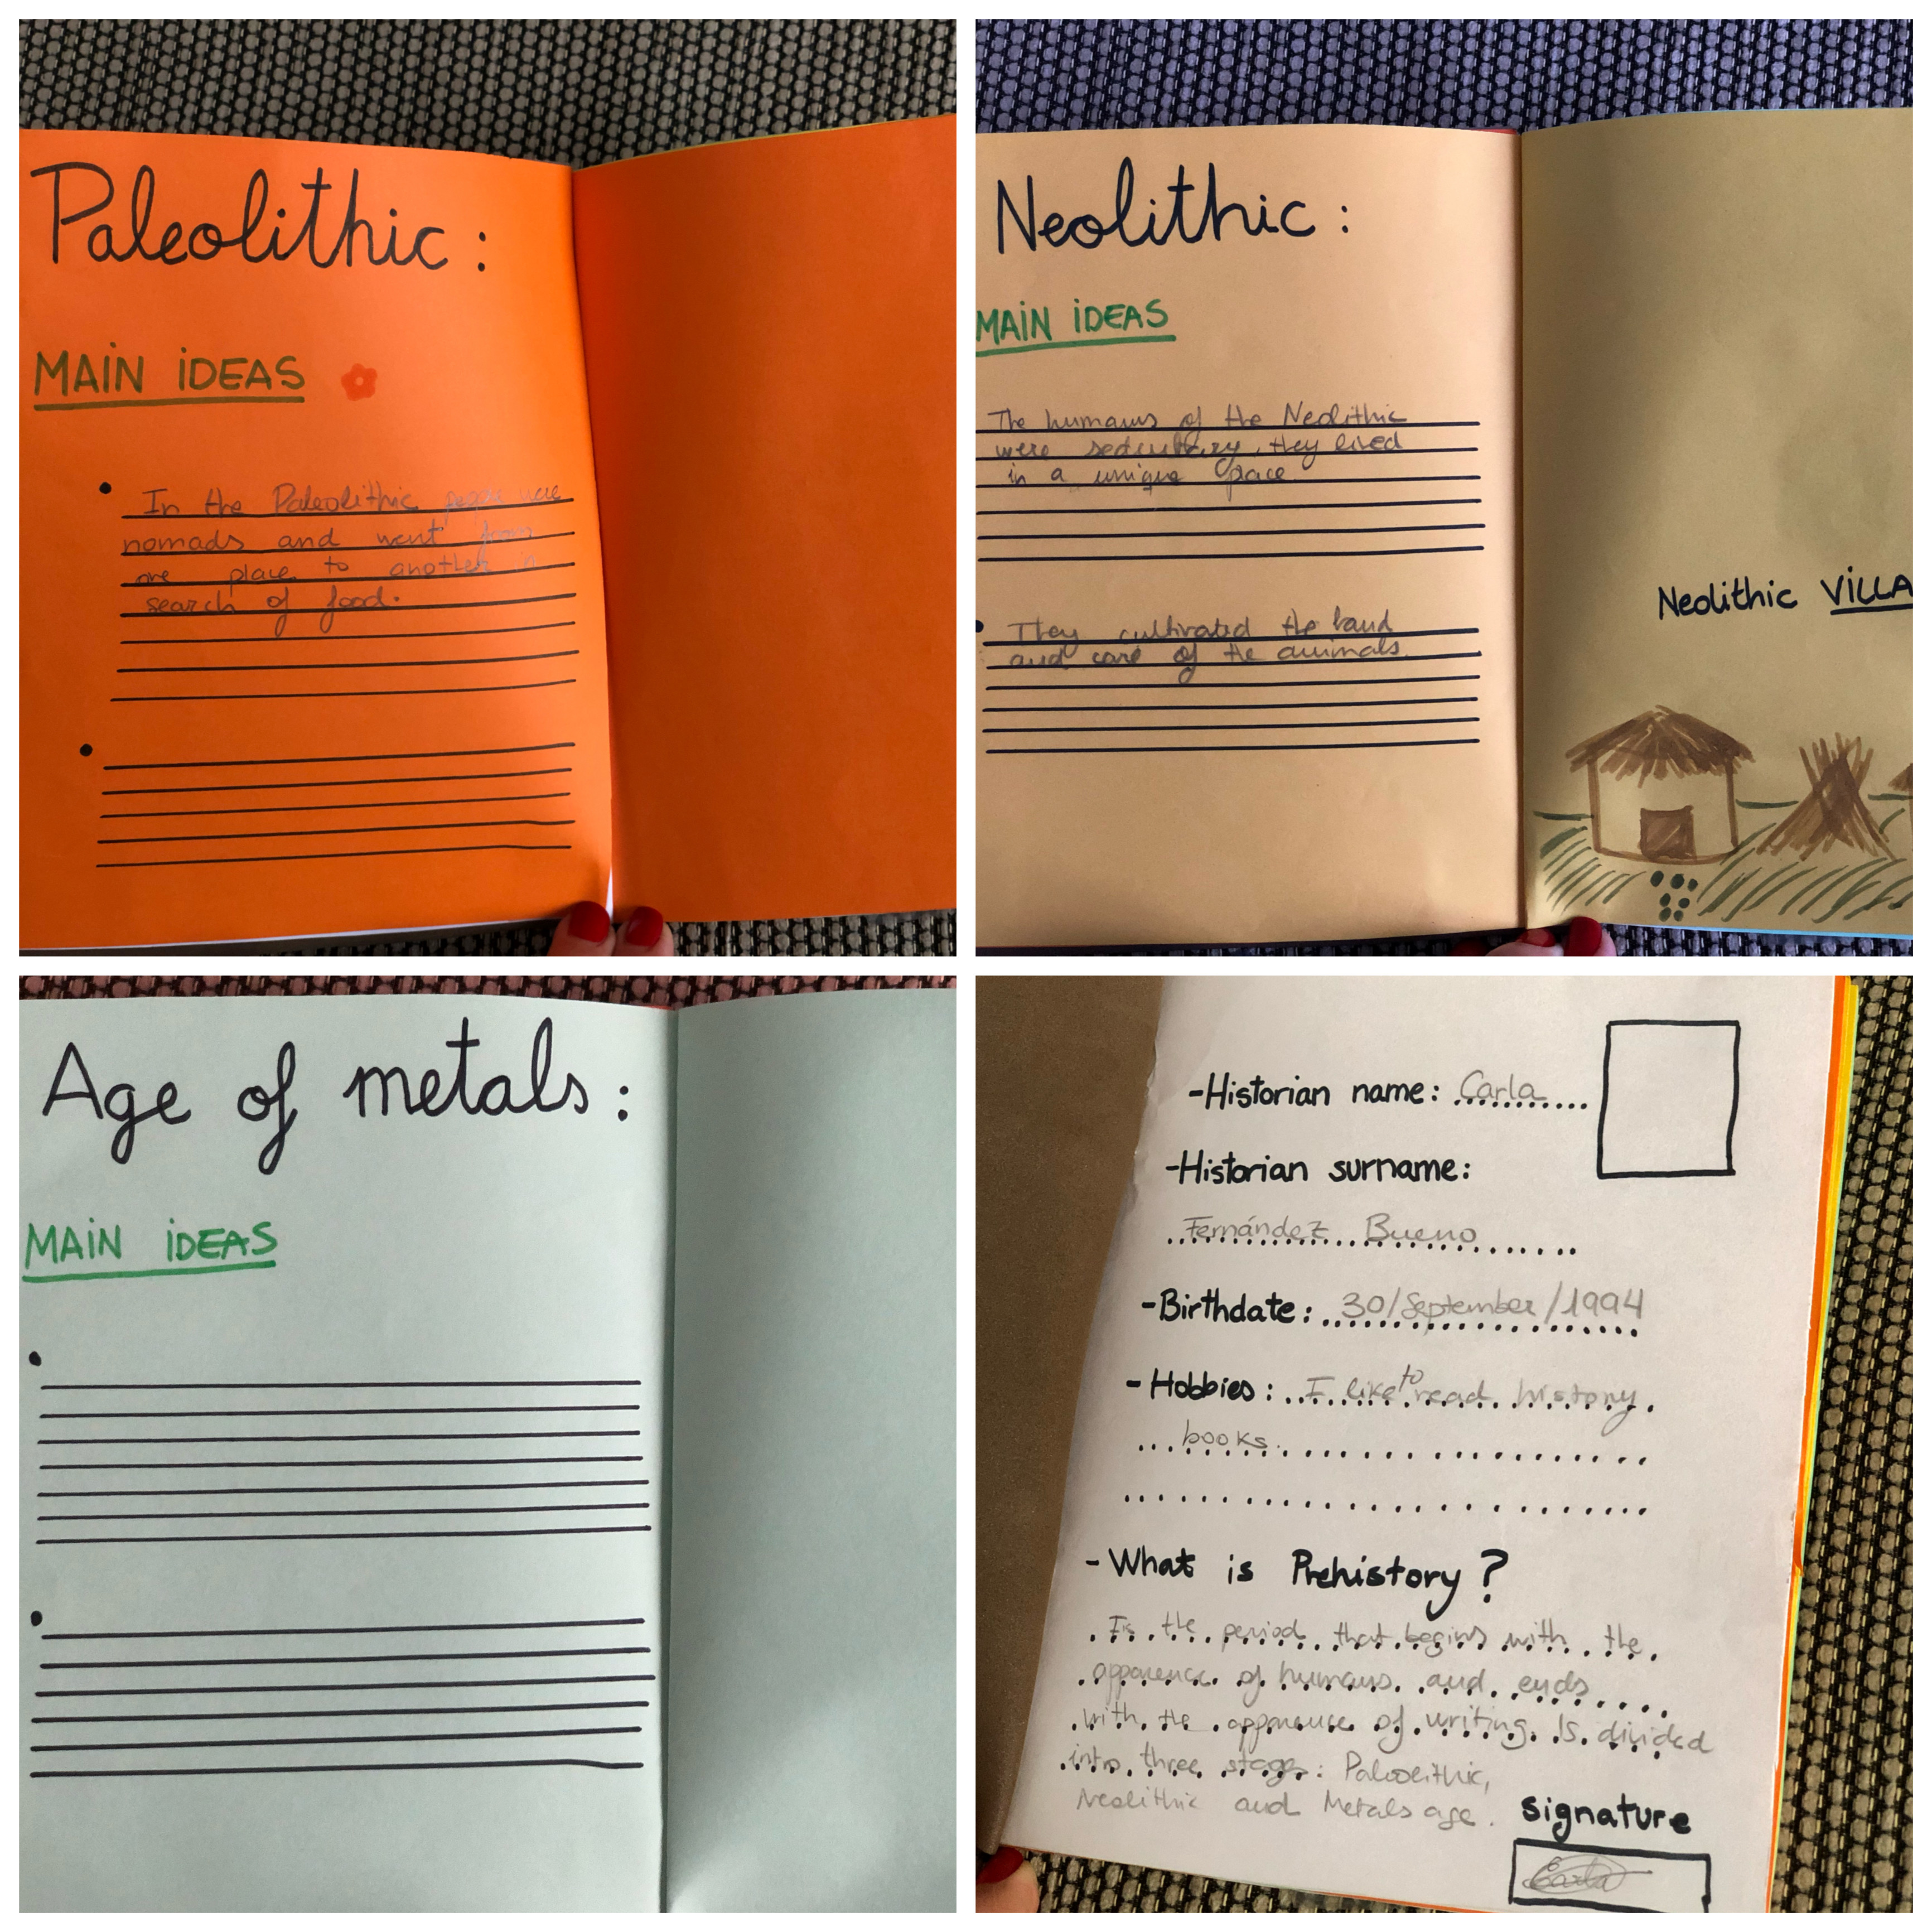 Paleolithic:
MAIN IDEAS
In the Paleolithic people were
nomads and went from
one place to another in
search of food.
Neolithic:
MAIN IDEAS
The humans of the Neolithic
were sedentary, they lived
in a unique space.
They cultivated the land
and care of the animals.
Neolithic VILLA
Age of metals:
MAIN IDEAS
-Historian name: Carla
-Historian surname:
Fernández Bueno
-Birthdate: 30/September/1994
-Hobbies: I like to read history
books.
-What is Prehistory?
Is the period that begins with the
of humans and ends
with the of writing. Is divided
into three stages: Paleolithic,
Neolithic and Metals age.
signature
Carla